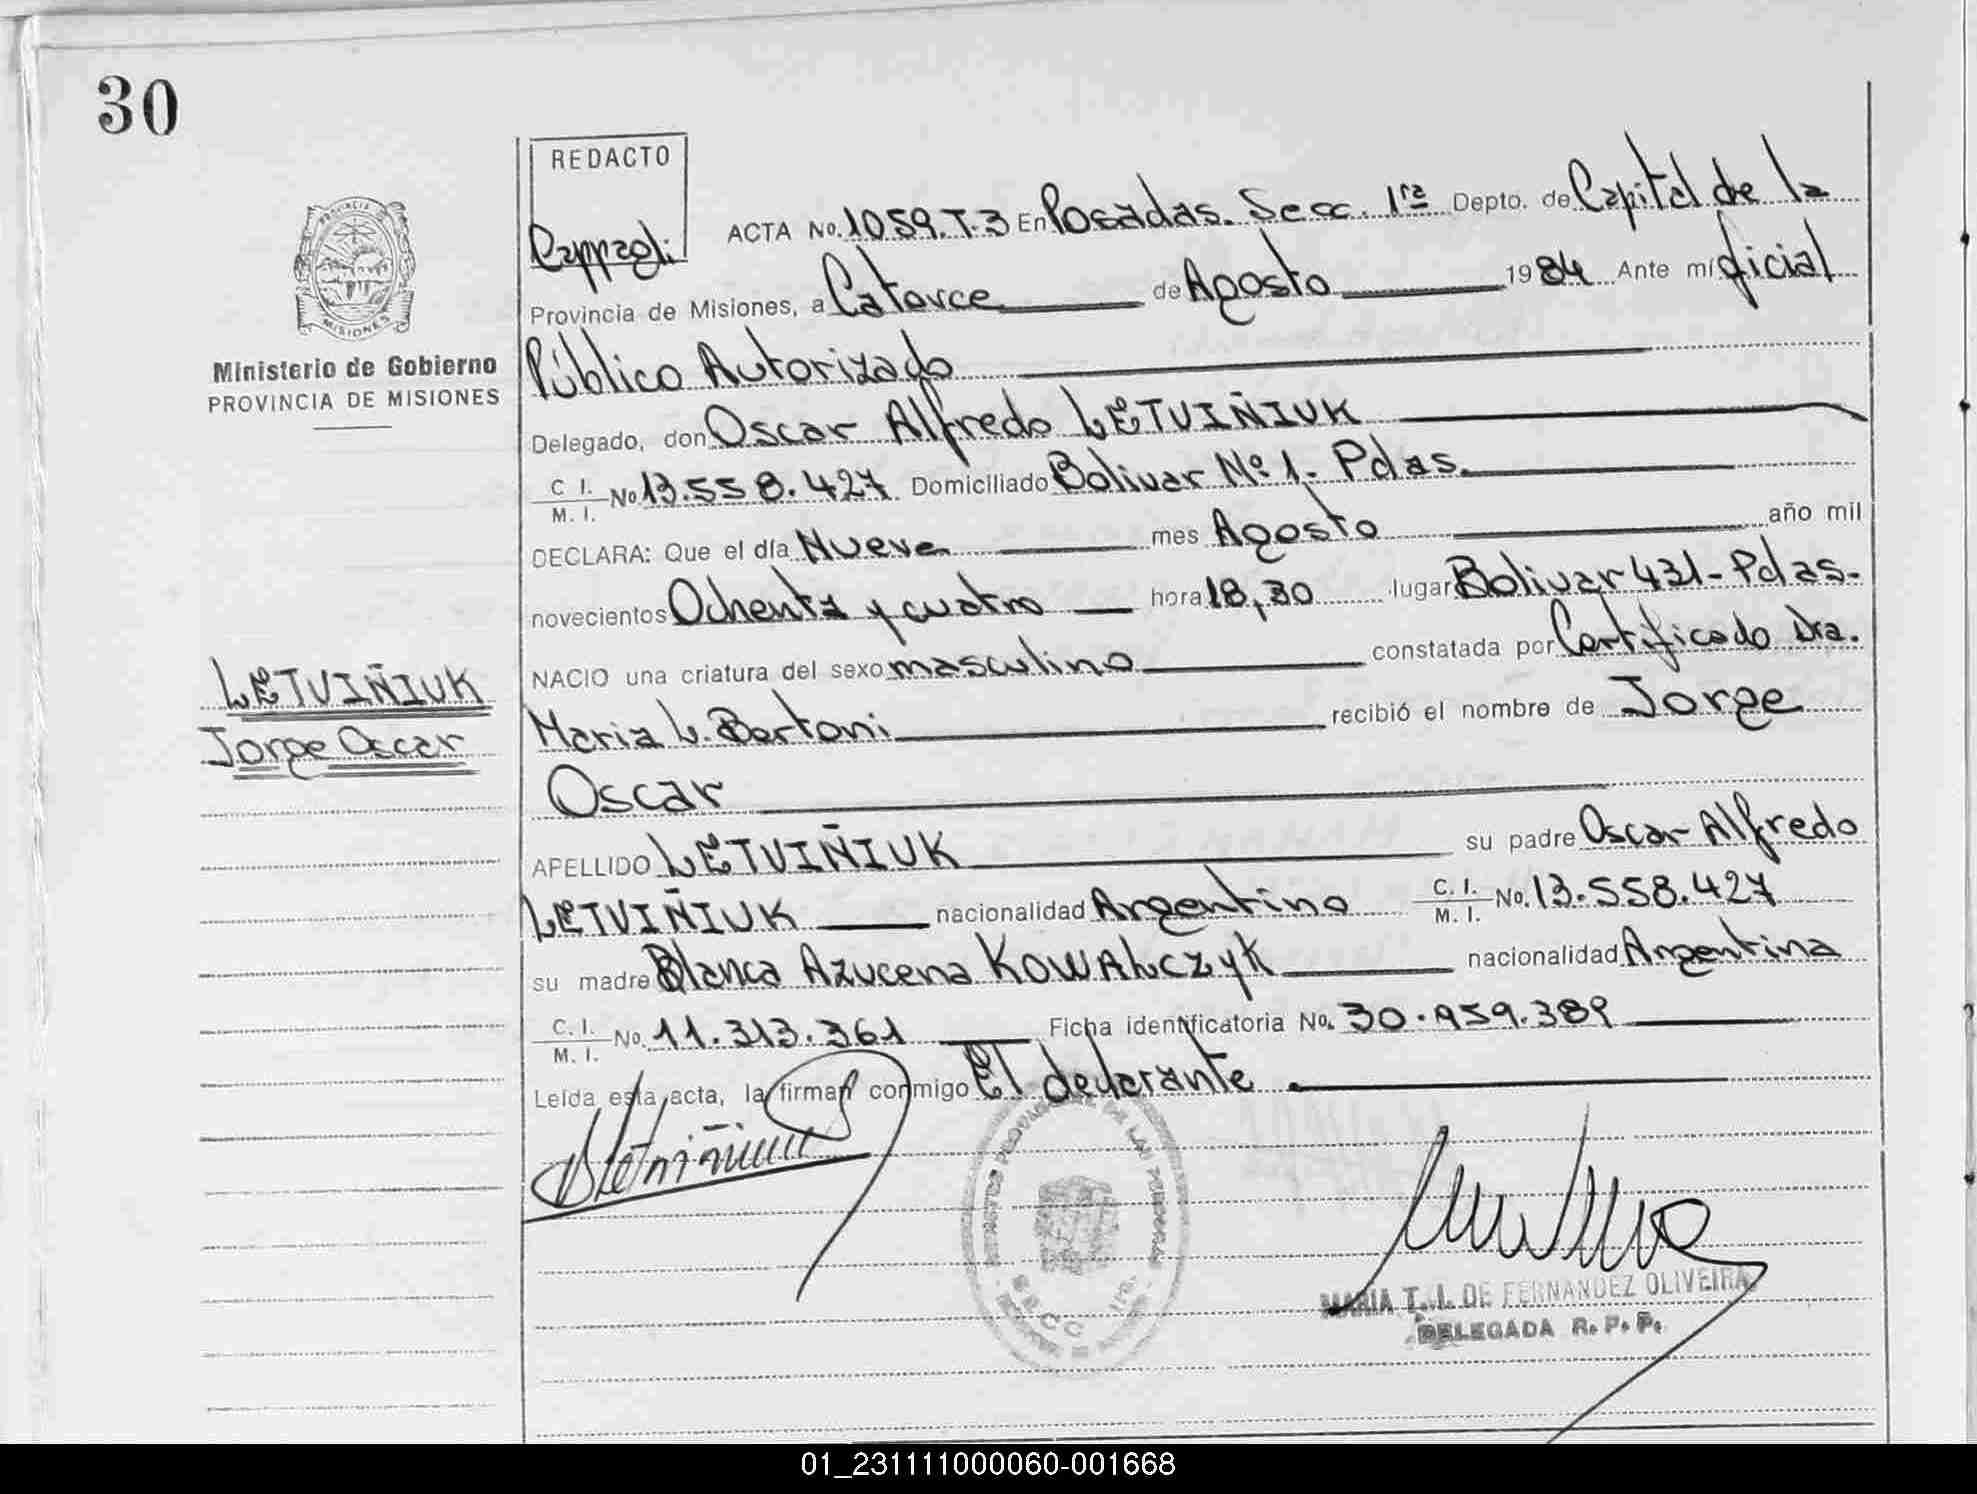 30
REDACTO
Cappagli
ACTA No. 1059.T.3 En Posadas. Secc. 1ra Depto. de Capital de la
Provincia de Misiones, a Catorce de Agosto 1984 Ante mí oficial
Público Autorizado
Delegado, don Oscar Alfredo LETVIÑIUK
C. I. M. I. No 13.558.427 Domiciliado Bolivar Nº 1. Pdas.
DECLARA: Que el día Nueve mes Agosto año mil
novecientos Ochenta y cuatro hora 18,30 lugar Bolivar 431- Pdas.
NACIO una criatura del sexo masculino constatada por Certificado Dra.
Maria L. Bertoni recibió el nombre de Jorge
Oscar
APELLIDO LETVIÑIUK su padre Oscar Alfredo
LETVIÑIUK nacionalidad Argentino C. I. M. I. No. 13.558.427
su madre Blanca Azucena KOWALCZYK nacionalidad Argentina
C. I. M. I. No. 11.313.361 Ficha identificatoria No. 30.959.389
Leída esta acta, la firman conmigo El declarante.
PROVINCIA
MISIONES
Ministerio de Gobierno
PROVINCIA DE MISIONES
LETVIÑIUK
Jorge Oscar
MARIA T. I. DE FERNANDEZ OLIVEIRA
DELEGADA R. P. P.
01_231111000060-001668